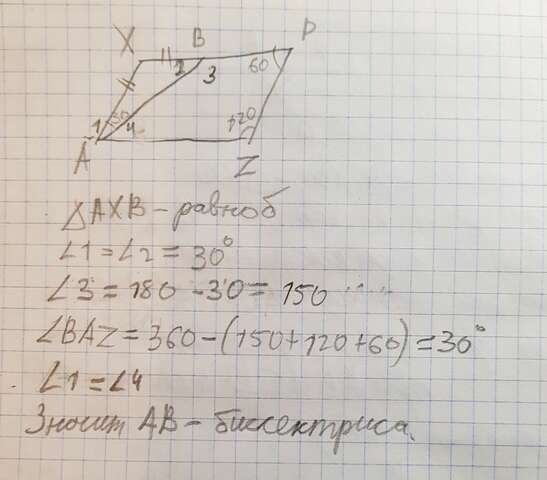 X B P
2 3 60
1 4 120
A Z
△AXB - равноб
∠1=∠2=30°
∠3=180-30=150
∠BAZ=360-(150+120+60)=30°
∠1=∠4
Зночит AB - биссектриса.